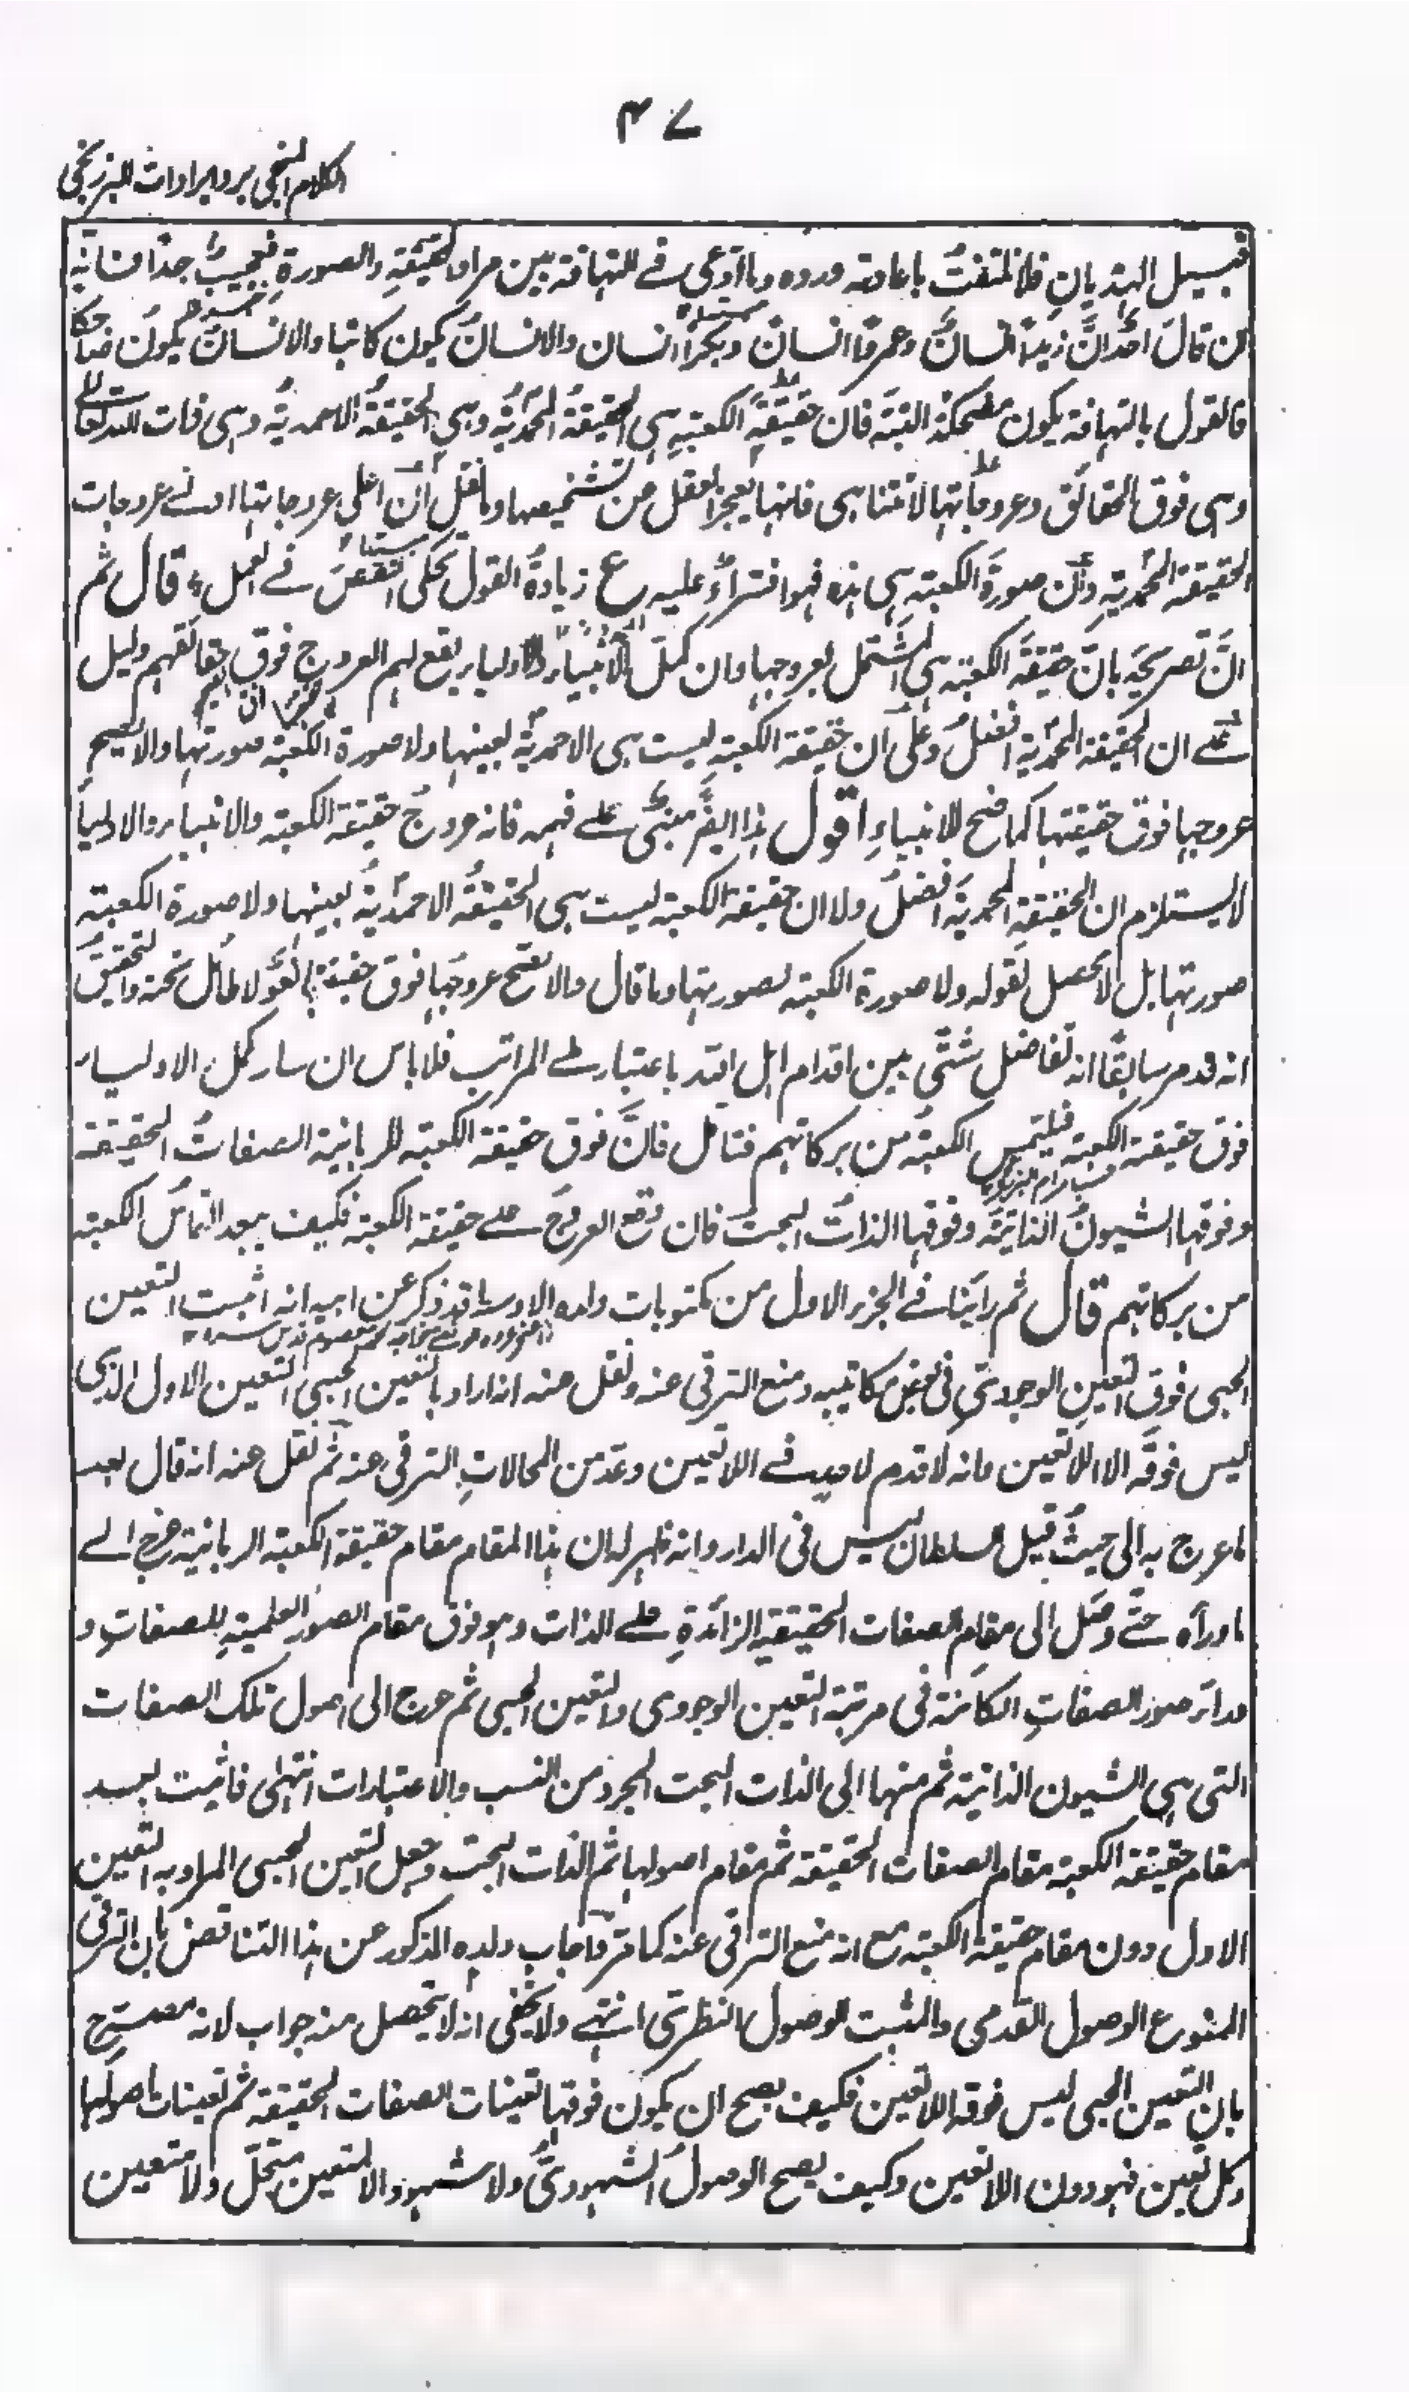 ٤٧
الكلام المنجي برد ايرادات البرزنجي
قبيل الهذيان فلا نلتفت باعادته وروده وما ادعى فے التهافة بين مراد الحقيقة والصورة فعجيب جدا فانه
من قال احد ان زيدا انسان وعمروا انسان وبكرا انسان والانسان يكون كاتبا والانسان يكون ضاحكا
فالقول بالتهافة يكون مضحكة البتة فان حقيقة الكعبة هي الحقيقة المحمدية وهي الحقيقة الاحمدية وهي ذات الله تعالے
وهى فوق الحقائق وعروجاتها لا تتناهى فانها يعجز العقل من تشخيصها وما نقل ان اعلى عروجاتها ادنے عروجات
الحقيقة المحمدية وان صورة الكعبة هي هذه فهو افتراء عليه ع زيادة القول تحكى النقص فے العمل، قال ثم
ان تصريحه بان حقيقة الكعبة هي المشتمل بعروجها وان كمل الانبياء والاولياء يقع لهم العروج فوق حقائقهم دليل
علے ان الحقيقة المحمدية افضل وعلى ان حقيقة الكعبة ليست هى الاحمدية بعينها ولا صورة الكعبة صورتها والا لصح
عروجها فوق حقيقتها كما صح للانبياء اقول هذا ايضا مبنى علے فهمه فانه عروج حقيقة الكعبة والانبياء والاولياء
لا يستلزم ان الحقيقة المحمدية افضل ولا ان حقيقة الكعبة ليست هى الحقيقة الاحمدية بعينها ولا صورة الكعبة
صورتها بل لا محصل لقوله ولا صورة الكعبة بصورتها وما قال والا تصح عروجها فوق حقيقة لغو لا طائل تحته والتحقيق
انه قد مر سابقا انه تفاضل شتى بين اقدام اهل الله باعتبار طے المراتب فلا باس ان سار كمل الاولياء
فوق حقيقة الكعبة فيلتمس الكعبة من بركاتهم فتامل فان فوق حقيقة الكعبة الربانية الصفات الحقيقة
وفوقها الشيون الذاتية وفوقها الذات البحت فان وقع العروج علے حقيقة الكعبة فكيف يبعد التماس الكعبة
من بركاتهم قال ثم رأينا فے الجزء الاول من مكتوبات ولده الاوسط قد ذكر عن ابيه انه اثبت التعين
الحبى فوق التعين الوجودى فى بعض مكاتيبه ومنع الترقى عنه ونقل عنه انه اراد بالتعين الحبى التعين الاول الذى
ليس فوقه الا اللاتعين وانه لا قدم لاحد فے اللاتعين وعد من المحالات الترقى عنه ثم نقل عنه انه قال بعد
ما عرج به الى حيث قيل السلطان ليس فى الدار وانه ظهر له ان هذا المقام مقام حقيقة الكعبة الربانية عرج الے
ما وراه حتے وصل الى مقام الصفات الحقيقية الزائدة علے الذات وهو فوق مقام الصور العلمية للصفات و
وراء صور الصفات الكائنة فى مرتبة التعين الوجودى والتعين الحبى ثم عرج الى اصول تلك الصفات
التى هى الشيون الذاتية ثم منها الى الذات البحت المجرد من النسب والاعتبارات انتهى فاثبت بعد
مقام حقيقة الكعبة مقام الصفات الحقيقة ثم مقام اصولها ثم الذات البحت وجعل التعين الحبى المراد به التعين
الاول دون مقام حقيقة الكعبة مع انه منع الترقى عنه كما مر واجاب ولده المذكور عن هذا التناقض بان الترقى
الممنوع الوصول القدمى والمثبت الوصول النظرى انتهے ولا يخفى انه لا يحصل منه جواب لانه مصرح
بان التعين الحبى ليس فوقه اللاتعين فكيف يصح ان يكون فوقها تعينات الصفات الحقيقة ثم تعينات اصولها
وكل تعين فهو دون اللاتعين وكيف يصح الوصول الشهودى ولا شهود الا لمتعين متجل ولا متعين